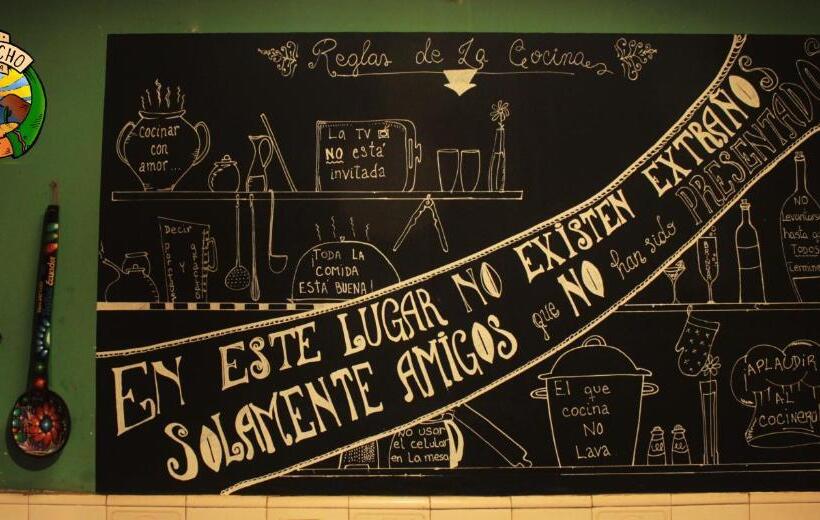 Reglas de La Cocina
Cocinar
con
amor...
La TV
NO está
invitada
Decir
TODA LA
COMIDA
ESTÁ BUENA!
EN ESTE LUGAR NO EXISTEN EXTRAÑOS
SOLAMENTE AMIGOS que NO han sido PRESENTADO
NO
Levantarse
hasta q
TODOS
Termine
No usar
el celular
en La mesa
El que
cocina
NO
Lava
APLAUDIR
AL
COCINERO
CHO
Ecuador